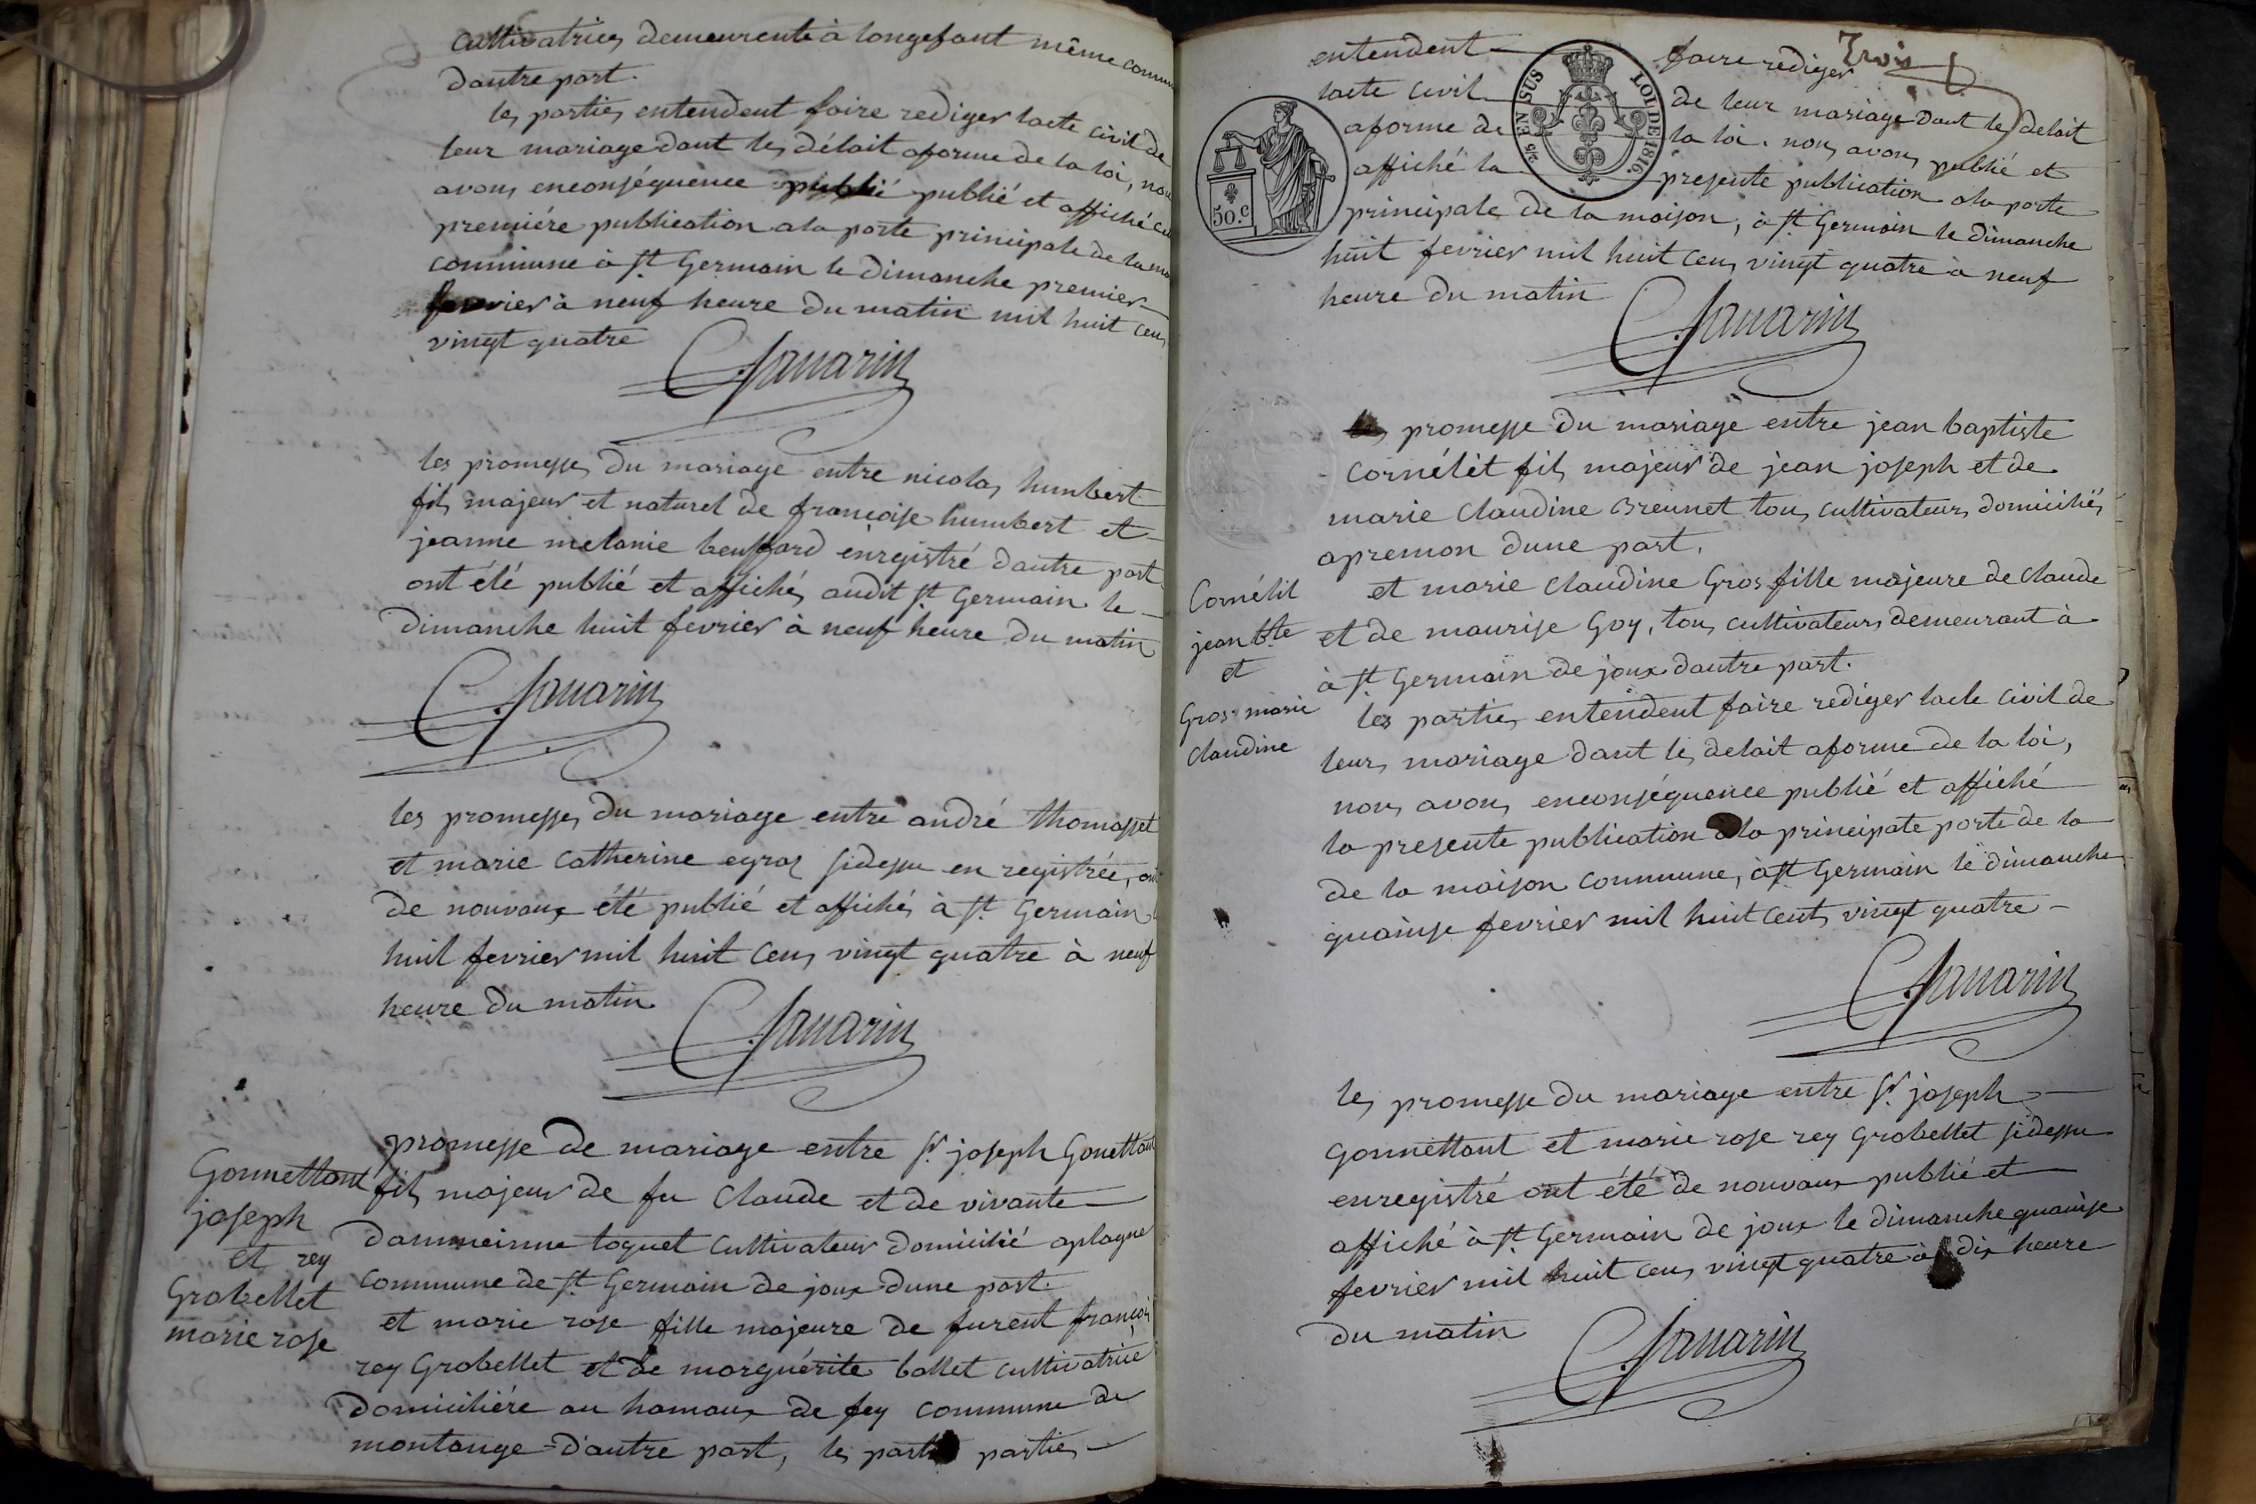 cultivatrices demeurente à longefant même commu
dautre part.
les parties entendent faire rediger lacte civil de
leur mariage dant les délait aforme de la loi, nou
avons enconséquence publié publié et affiché
premiére publication ala porte principale de la
commune à St Germain le dimanche premier
fevrier à neuf heure du matin mil huit cens
vingt quatre
Savarin
les promesses du mariage entre nicolas humbert
fils majeur et naturel de françoise humbert et
jeanne melanie enregistré dautre part
ont été publié et affichés audit St Germain le
dimanche huit fevrier à neuf heure du matin
Savarin
les promesses du mariage entre andré thomasset
et marie catherine egraz sidessu en registrée, on
de nouvaux été publié et affichés à St Germain
huit fevrier mil huit cens vingt quatre à neuf
heure du matin
Savarin
Gonnettant
joseph
et rey
Grobellet
marie rose
promesse de mariage entre Sr joseph Gonettant
fils majeur de fu Claude et de vivante
toquet cultivateur domicilié aplagne
commune de St Germain de joux dune part.
et marie rose fille majeure de furent françois
rey Grobellet et de marguérite ballet cultivatrice
domiciliére au hamaux de fey commune de
montange d'autre part, les parti parties
Trois
entendent faire rediger
lacte civil de leur mariage dant les delait
aforme de la loi. nous avons publié et
affiché la presente publication ala porte
principale de la maison, à St Germain le dimanche
huit fevrier mil huit cens vingt quatre à neuf
heure du matin
5/2 EN SUS LOI DE 1816.
50.c
Savarin
les promesse du mariage entre jean baptiste
Cornélit fils majeur de jean joseph et de
marie claudine Breunet tous cultivateurs domiciliés
apremon dune part.
Cornélit
jean bte
et
Gros marie
claudine
et marie claudine Gros fille majeure de claude
et de maurise Goy, tous cultivateurs demeurant à
à St Germain de joux dautre part.
les parties entendent faire rediger lacte civil de
leurs mariage dant les delait aforme de la loi,
nous avons enconséquence publié et affiché
la presente publication ala principale porte de la
de la maison commune, à St Germain le dimanche
quainse fevrier mil huit cents vingt quatre
Savarin
les promesse du mariage entre Sr joseph
Gonnettant et marie rose rey Grobellet sidessu
enregistré ont été de nouvaux publié et
affiché à St Germain de joux le dimanche quainse
fevrier mil huit cens vingt quatre à dix heure
du matin
Savarin